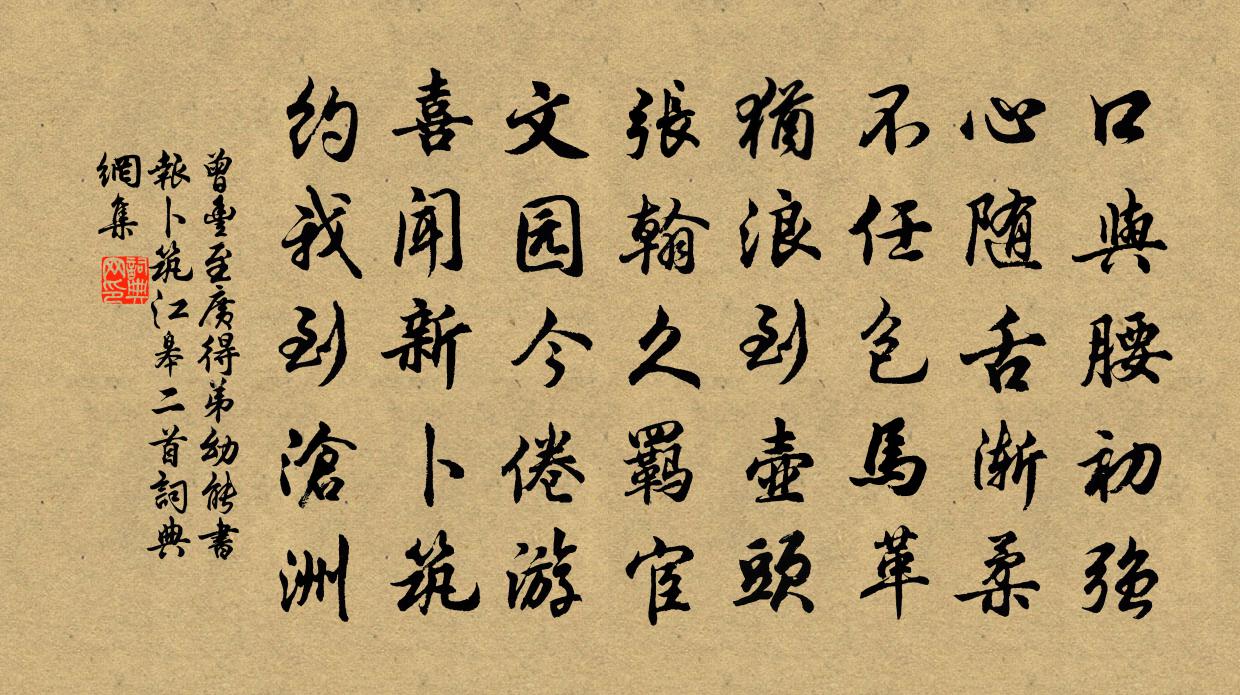 口與腰初强
心随舌漸柔
不任包馬革
猶浪到壺頭
張翰久羈宦
文园今倦游
喜聞新卜筑
約我到滄洲
曾豊至廣得弟幼能書
報卜筑江皋二首詞典
網集
詞典
网印